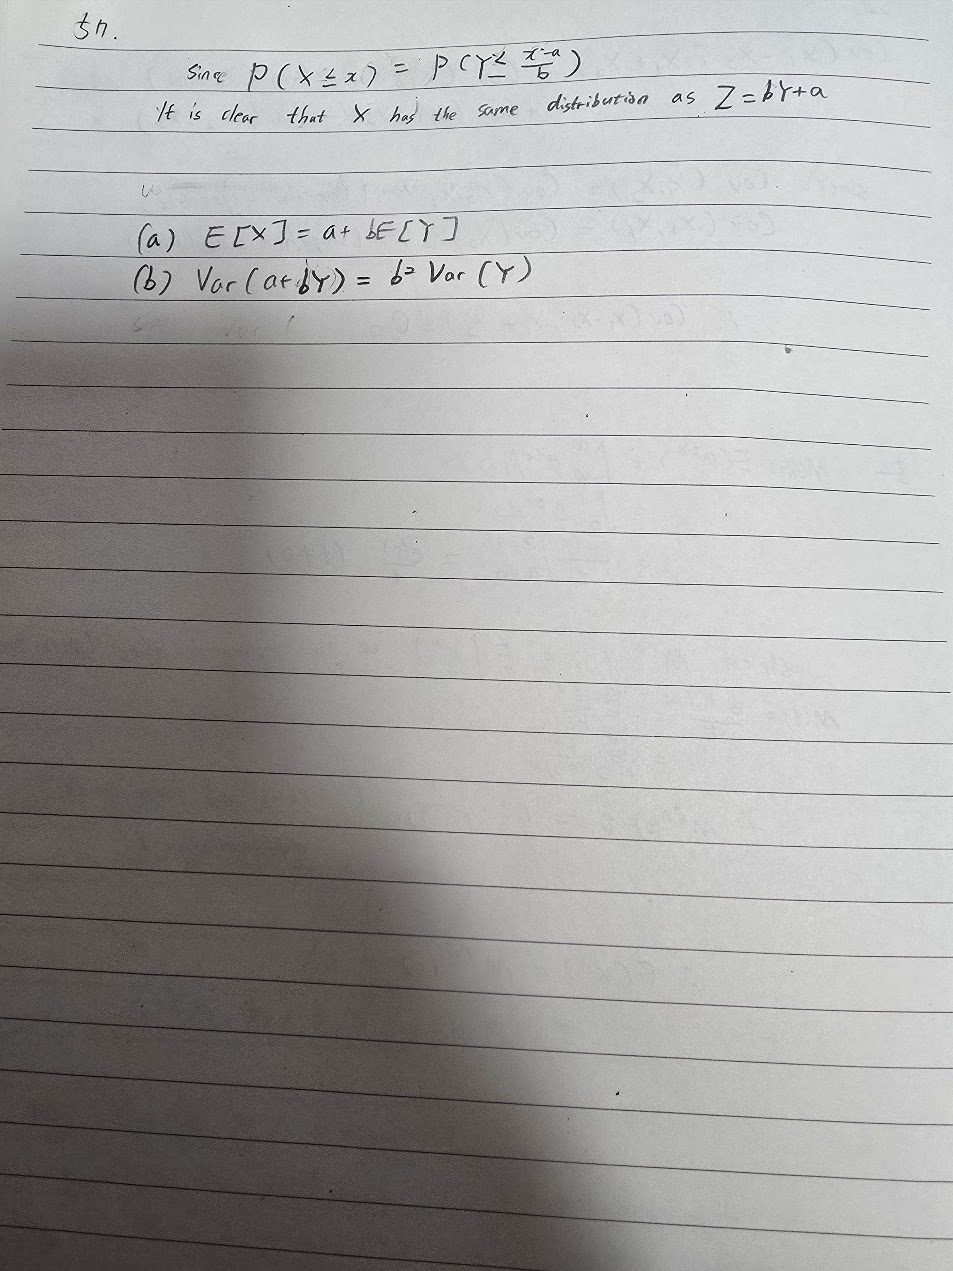 Since P(X ≤ x) = P(Y ≤ (x-a)/b)
It is clear that X has the same distribution as Z = bY+a
(a) E[X] = a + bE[Y]
(b) Var(a+bY) = b² Var(Y)